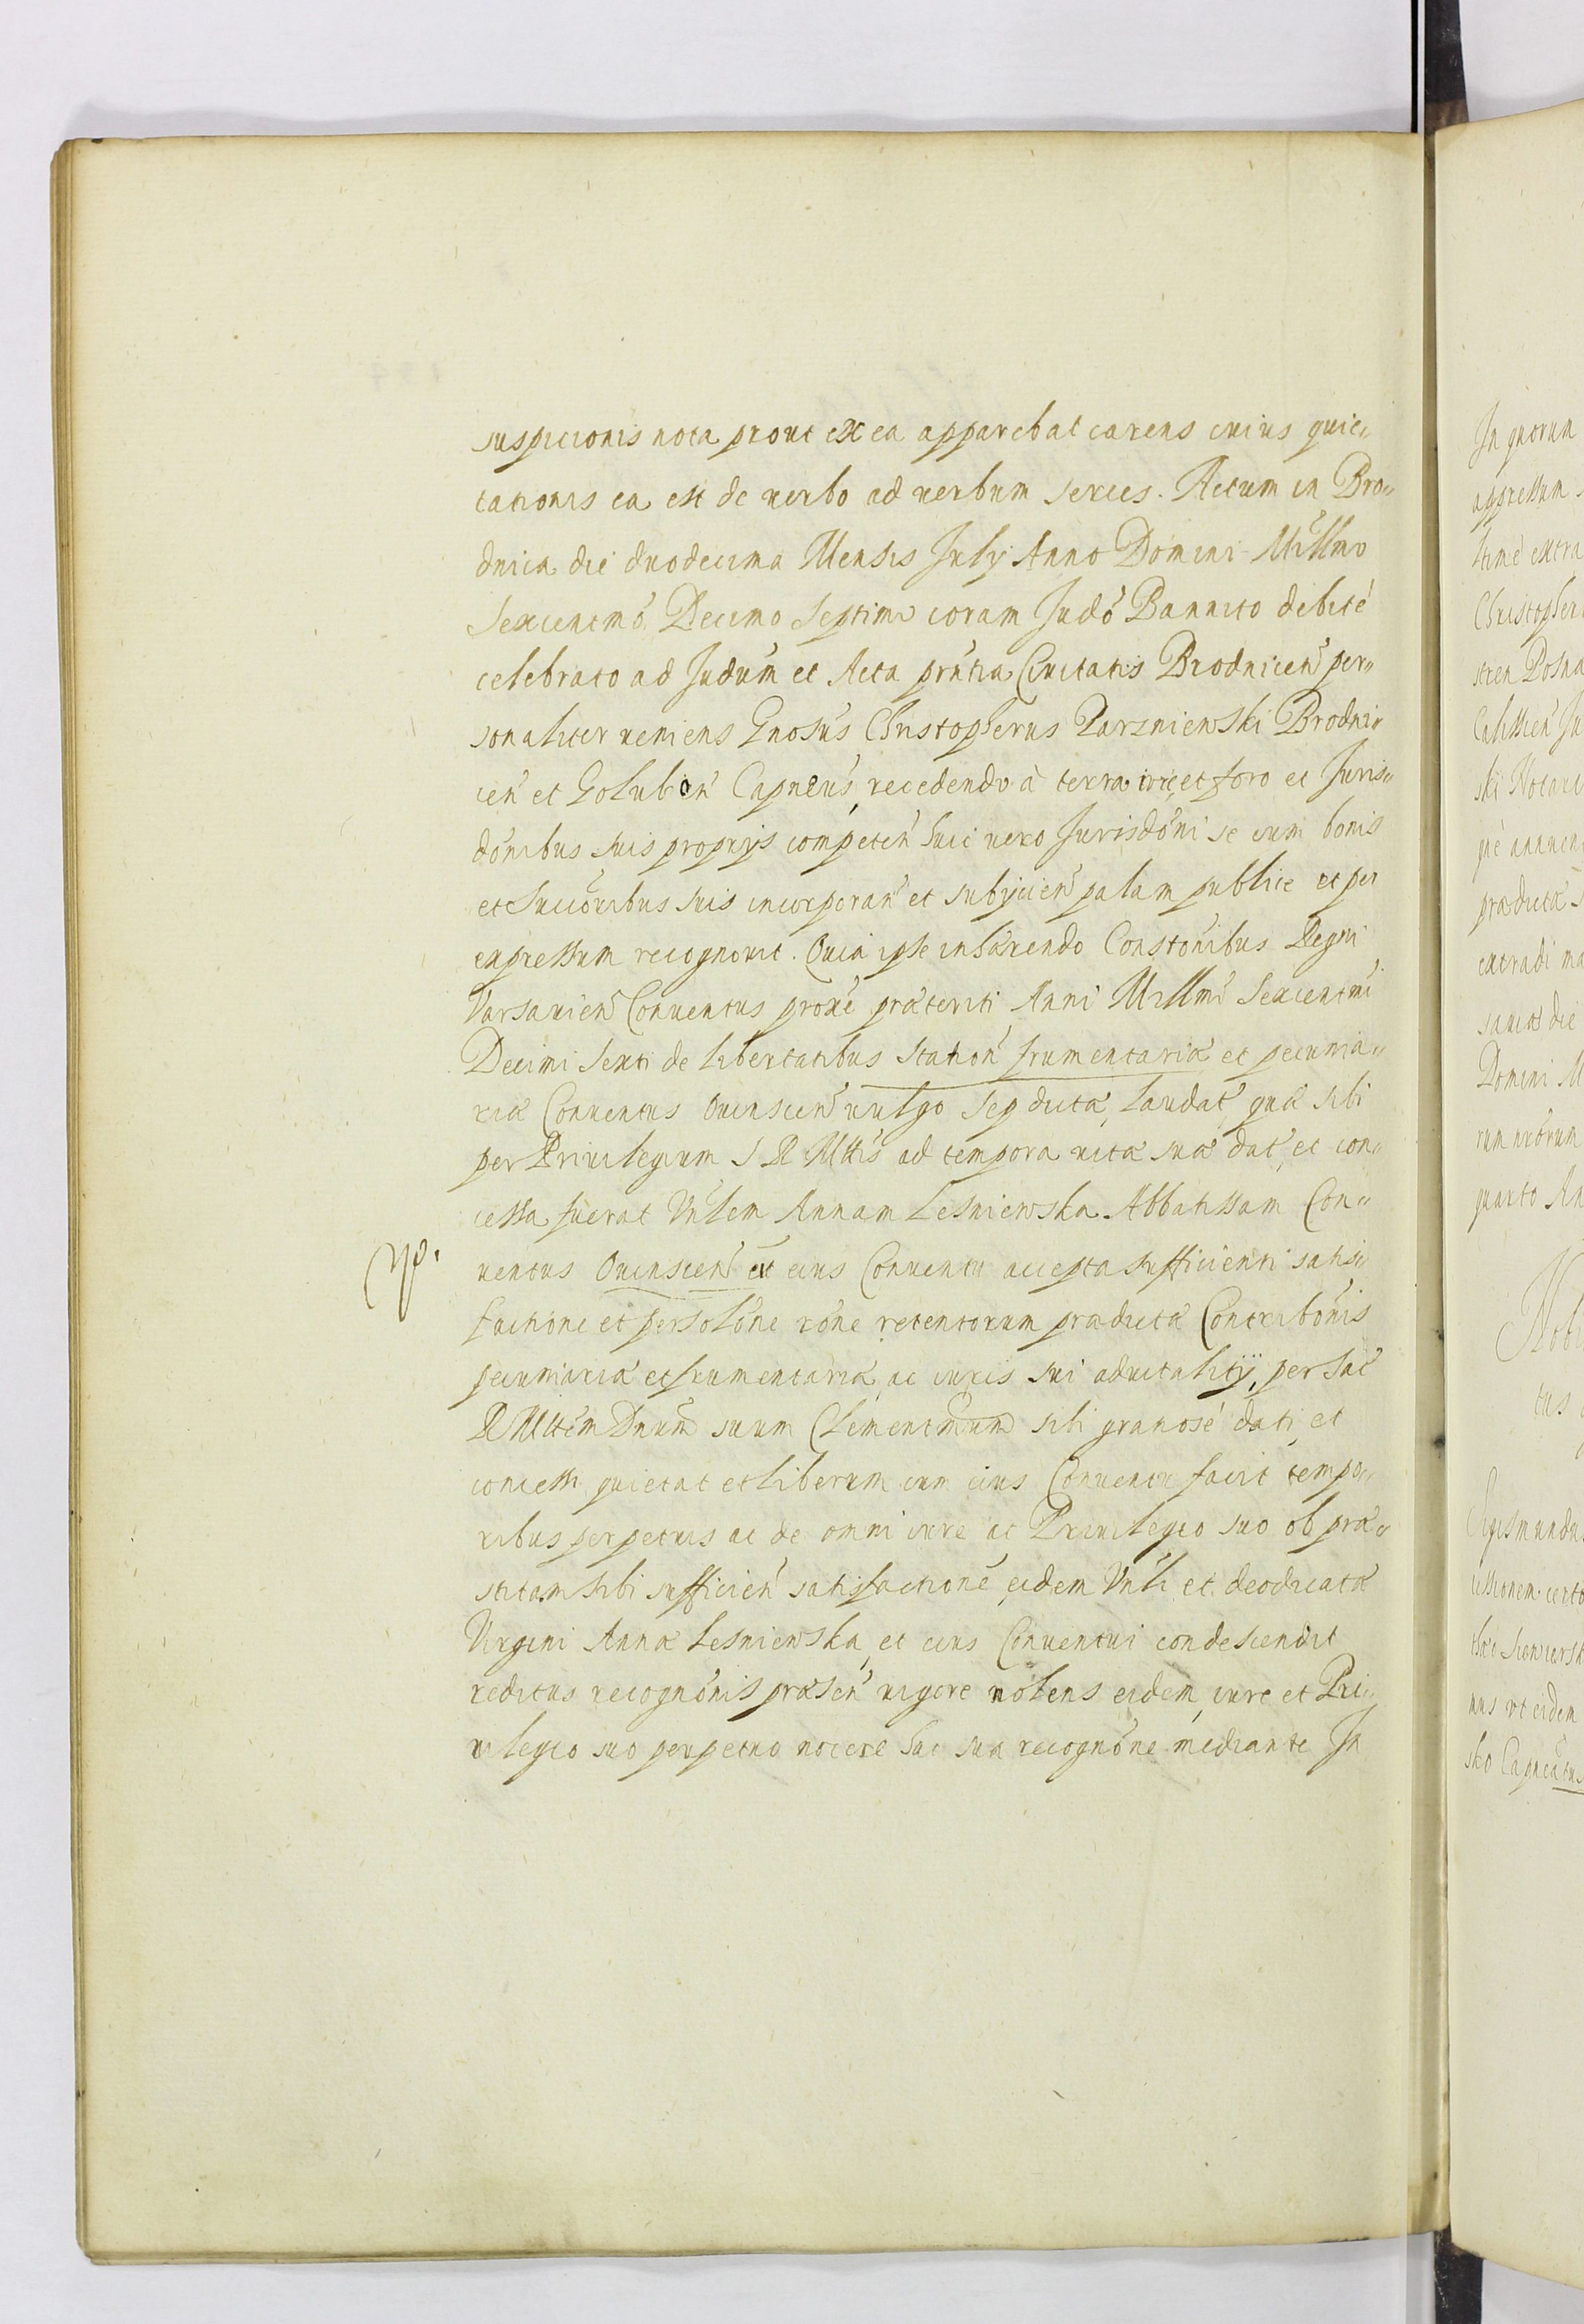 suspicionis nota prout ex ea apparebat carens cuius quie„
tationis ea est de verbo ad verbum series. Actum in Bro„
dnica die duodecima Mensis July Anno Domini Millmo
Sexcentmo Decimo Septimo coram Judõ Bannito debité
celebrato ad Judum et Acta prntia Civitatis Brodnicen per„
sonaliter veniens Gnosus Christopherus Parzniewski Brodni„
cen et Golubien Capneus, recedendo à terra et foro et Juris„
donibus suis proprijs competen huic vero Jurisdoni se cum bonis
et Succoribus suis incorporan et subijcien palam publice et per
expressum recognovit. Quia ipse inhærendo Constonibus Regni
Varsavien Conventus proxe præteriti Anni Millmi Sexcentmi
Decimi Sexti de libertatibus Station frumentariæ et pecunia„
riæ Conventus Ovinscen vulgo Sep dictæ, laudat quæ sibi
per Privilegium S R Mttis ad tempora vitæ suæ dat, et con„
cessa fuerat Vnlem Annam Lesniewska Abbatissam Con„
ventus Ovinscen et eius Conventu accepta sufficienti satis„
factione et persolone rone retentorum prædictæ Contribonis
pecuniariæ et frumentariæ, ac iuris sui advitalitij, per Sac
R Mttem Dnum suum Clementmum sibi gratiosé dati, et
concessi quietat et liberum cum eius Conventu facit tempo„
ribus perpetuis ac de omni iure ac Privilegio suo ob præ„
stitam sibi sufficien satisfactione, eidem Vnli et deodicatæ
Virgini Annæ Lesniewska, et eius Conventui condescendit
reditus recognonis præsen vigore nolens eidem, iure et Pri„
vilegio suo perpetuo nocere hac sua recognone mediante In
In quorum
appressum
Christopheri
Calissien Ju
ski Notari
extradi ma
Domini M
quarto An
tus
nus vt eidem